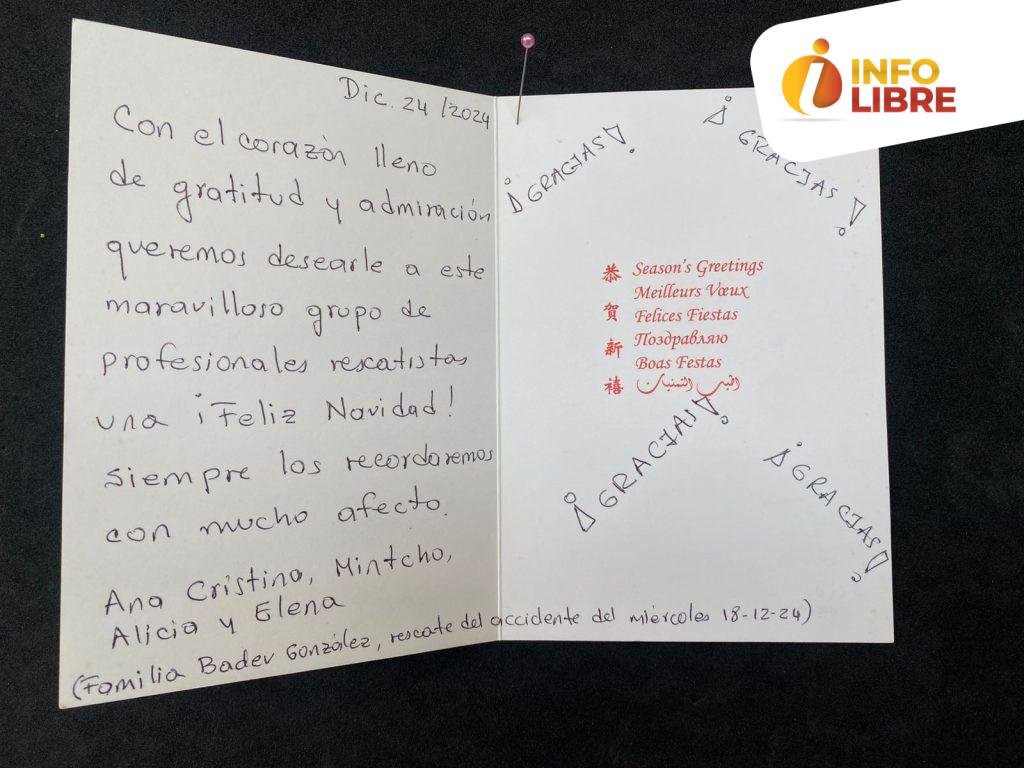 INFO
LIBRE
Dic. 24 /2024
Con el corazón lleno
de gratitud y admiración
queremos desearle a este
maravilloso grupo de
profesionales rescatistas
una ¡Feliz Navidad!
siempre los recordaremos
con mucho afecto.
Ana Cristina, Mintcho,
Alicia y Elena
(Familia Badev González, rescate del accidente del miércoles 18-12-24)
¡GRACIAS!
¡GRACIAS!
恭賀新禧
Season's Greetings
Meilleurs Vœux
Felices Fiestas
Поздравляю
Boas Festas
¡GRACIAS!
¡GRACIAS!